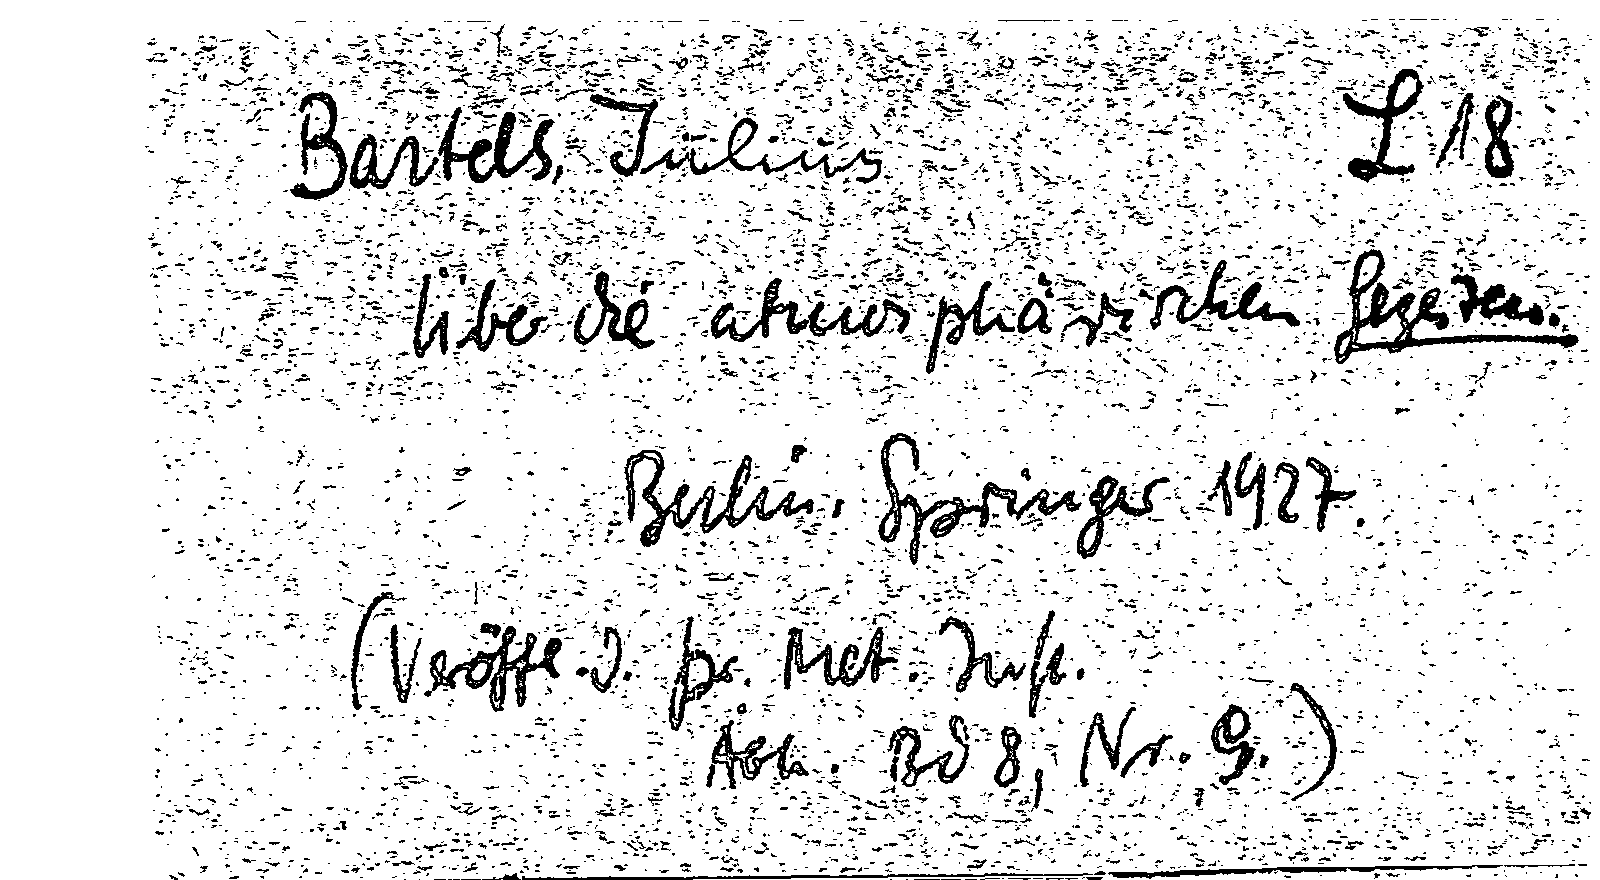 Bartels, Julius L 18
über die atmosphärischen Gezeiten.
Berlin. Springer 1927.
(Veröff. d. pr. Met. Inst.
Abh. Bd 8, Nr. 9.)